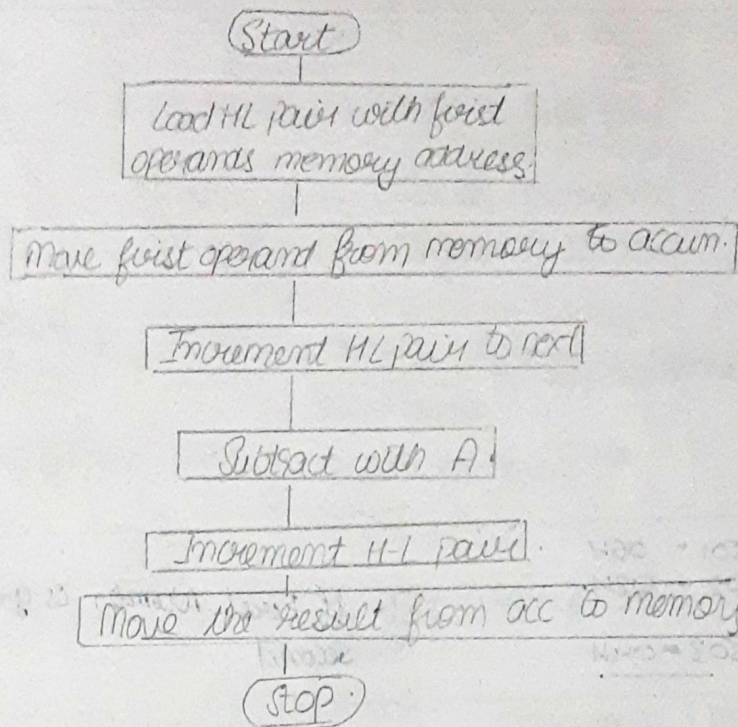 Start
Load HL pair with first
operands memory address.
Move first operand from memory to accum.
Increment HL pair to next
Subtract with A.
Increment H-L pair.
Move the result from acc to memory
Stop.